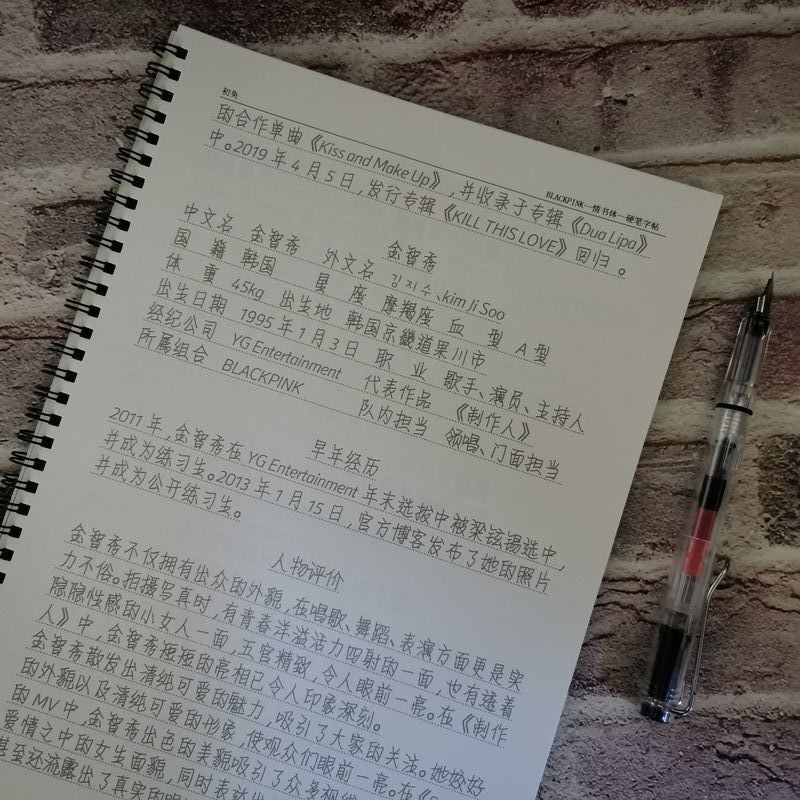 初奂
BLACKPINK—情书体—硬笔字帖
的合作单曲《Kiss and Make Up》,并收录于专辑《Dua Lipa》
中。2019 年 4 月 5 日,发行专辑《KILL THIS LOVE》回归。
金智秀
中文名 金智秀 外文名 김지수、kim Ji Soo
国 籍 韩国 星 座 摩羯座 血 型 A 型
体 重 45kg 出生地 韩国京畿道果川市
出生日期 1995 年 1 月 3 日 职 业 歌手、演员、主持人
经纪公司 YG Entertainment 代表作品 《制作人》
所属组合 BLACKPINK 队内担当 领唱、门面担当
早年经历
2011 年,金智秀在 YG Entertainment 年末选拔中被梁铉锡选中,
并成为练习生。2013 年 1 月 15 日,官方博客发布了她的照片
并成为公开练习生。
人物评价
金智秀不仅拥有出众的外貌,在唱歌、舞蹈、表演方面更是实
力不俗。拍摄写真时,有青春洋溢活力四射的一面,也有透着
隐隐性感的小女人一面,五官精致,令人眼前一亮。在《制作
人》中,金智秀短短的亮相已令人印象深刻。
金智秀散发出清纯可爱的魅力,吸引了大家的关注。她姣好
的外貌以及清纯可爱的形象,使观众们眼前一亮。在《
的 MV 中,金智秀出色的美貌吸引了众多视线
爱情之中的女生面貌,同时表达出
甚至还流露出了真实的眼